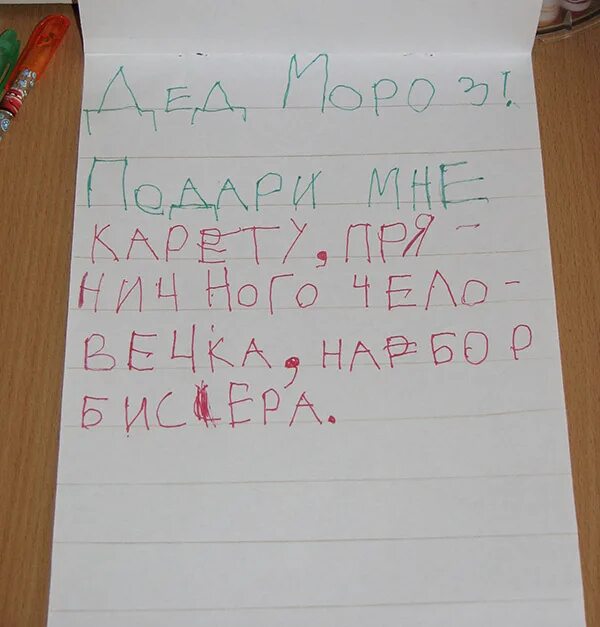 Дед Мороз!
Подари мне
карету, пря-
ничного чело-
вечка, нарбор
бисера.